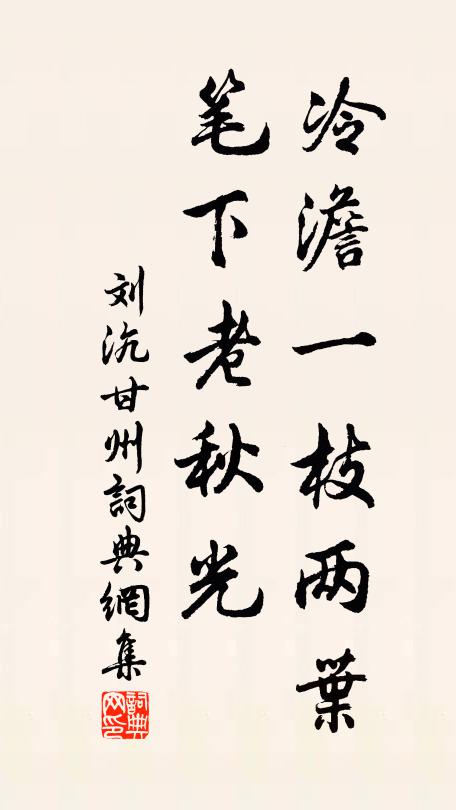 冷澹一枝两葉
笔下老秋光
刘沆甘州詞典網集
詞典网印